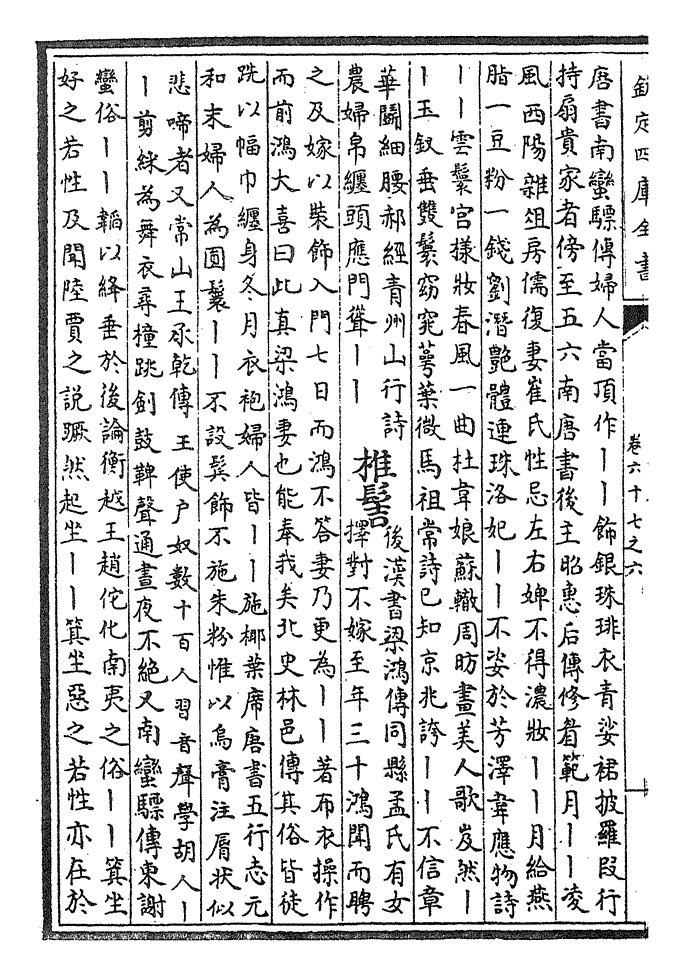 欽定四庫全書
卷六十七之六
唐書南蠻驃傳婦人當頂作丨丨飾銀珠琲衣青娑裙披羅段行
持扇貴家者傍至五六南唐書後主昭惠后傳修眉範月丨丨凌
風西陽雜俎房儒復妻崔氏性忌左右婢不得濃妝丨丨月給燕
脂一豆粉一錢劉潛艷體連珠洛妃丨丨不姿於芳澤韋應物詩
丨丨雲鬟宫樣妝春風一曲杜韋娘蘇轍周昉畫美人歌岌然丨
丨玉釵垂雙鬟窈窕蕚葉微馬祖常詩已知京兆誇丨丨不信章
華鬭細腰郝經青州山行詩
農婦帛纏頭應門聳丨丨
椎髻
後漢書梁鴻傳同縣孟氏有女
擇對不嫁至年三十鴻聞而聘
之及嫁以裝飾入門七日而鴻不答妻乃更為丨丨著布衣操作
而前鴻大喜曰此真梁鴻妻也能奉我矣北史林邑傳其俗皆徒
跣以幅巾纏身冬月衣袍婦人皆丨丨施椰葉席唐書五行志元
和末婦人為圓鬟丨丨不設鬢飾不施朱粉惟以烏膏注唇狀似
悲啼者又常山王承乾傳王使户奴數十百人習音聲學胡人丨
丨剪綵為舞衣尋橦跳劍鼓鞞聲通晝夜不絶又南蠻驃傳東謝
蠻俗丨丨韜以絳垂於後論衡越王趙佗化南夷之俗丨丨箕坐
好之若性及聞陸賈之説蹶然起坐丨丨箕坐惡之若性亦在於